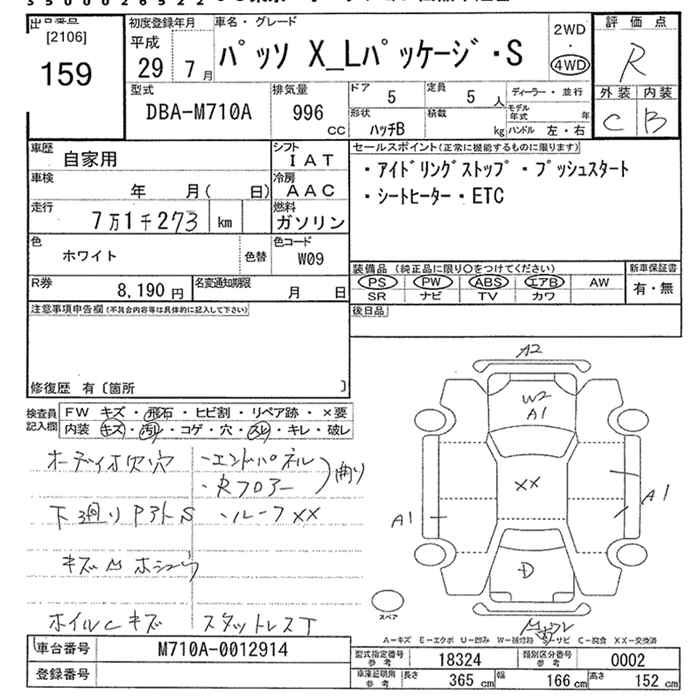 [2106]
159
初度登録年月
平成
29 年 7 月
車名・グレード
パッソ X_Lパッケージ・S
2WD
・
4WD
評価点
R
外装 内装
C B
型式
DBA-M710A
排気量
996
CC
ドア 5
定員 5 人
形状 ハッチB
積載 kg
ディーラー・並行
モデル年式 年
ハンドル 左・右
車歴
自家用
シフト
IAT
車検
年 月( 日)
冷房
AAC
走行
7万1千273 km
燃料
ガソリン
色
ホワイト
色替
色コード
W09
R券
8,190 円
名変通知期限
月 日
セールスポイント(正常に機能するものに限ります)
・アイドリングストップ・プッシュスタート
・シートヒーター・ETC
装備品(純正品に限り○をつけてください)
PS PW ABS エアB AW
SR ナビ TV カワ
新車保証書
有・無
注意事項申告欄(不具合内容等は具体的に記入して下さい)
後日品
修復歴 有〔箇所 〕
検査員記入欄
FW キズ・飛石・ヒビ割・リペア跡・×要
内装 キズ・汚レ・コゲ・穴・スレ・キレ・破レ
オーディオ欠穴
・エンドパネル
・Rフロアー
曲り
下廻りPアトS
・ルーフXX
キズ凹
ホイルCキズ
スタットレスT
A2
W2
A1
XX
A1
A1
D
スペア
A-キズ E-エクボ U-凹み W-補修跡 S-サビ C-腐食 XX-交換済
車台番号
M710A-0012914
登録番号
型式指定番号 参考
18324
類別区分番号 参考
0002
車庫証明用 参考
長さ 365 cm
幅 166 cm
高さ 152 cm